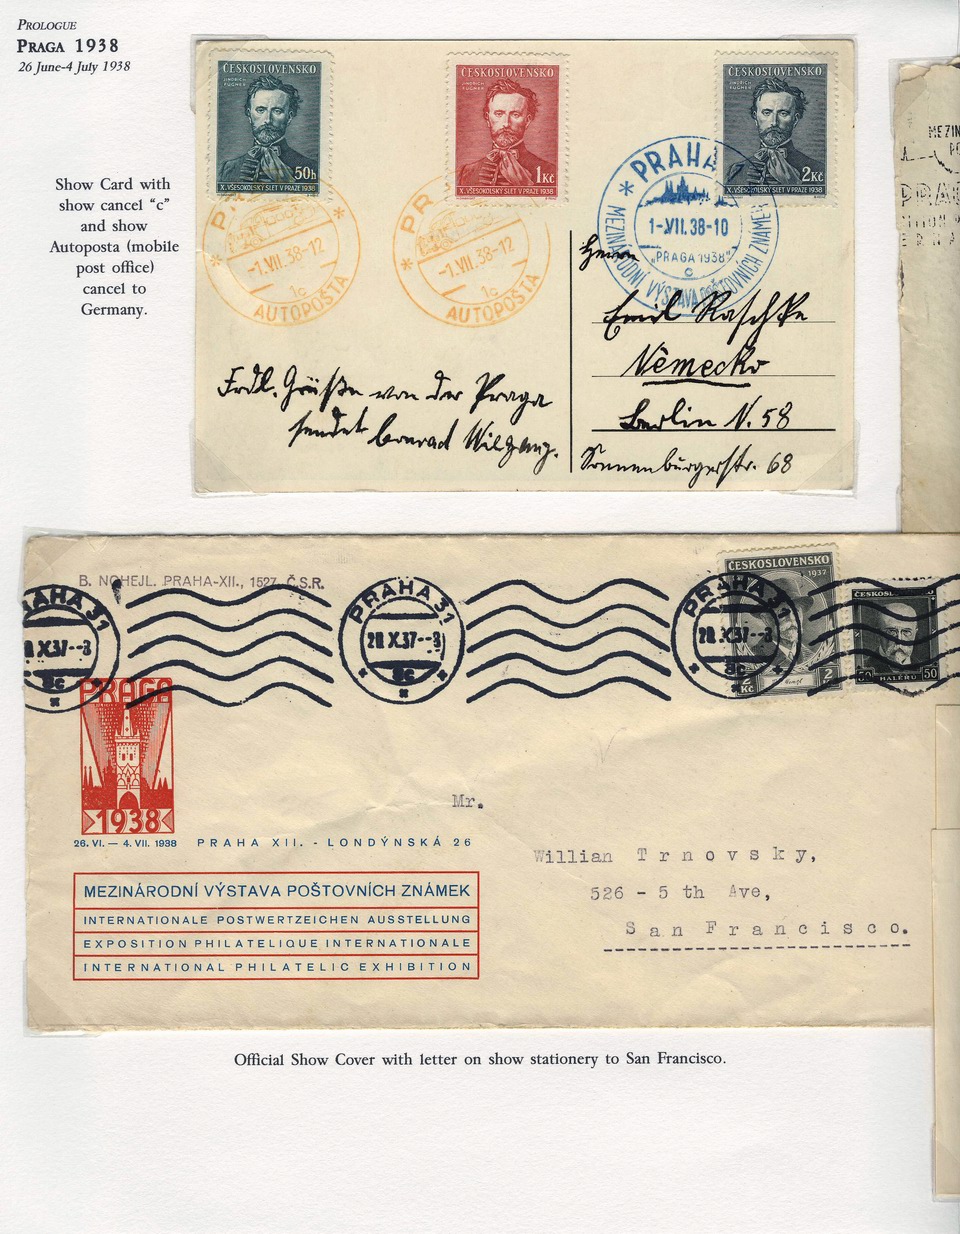 PROLOGUE
PRAGA 1938
26 June-4 July 1938
Show Card with
show cancel “c”
and show
Autoposta (mobile
post office)
cancel to
Germany.
ČESKOSLOVENSKO
JINDŘICH
FÜGNER
50h
X. VŠESOKOLSKÝ SLET V PRAZE 1938
ČESKOSLOVENSKO
JINDŘICH
FÜGNER
1Kč
X. VŠESOKOLSKÝ SLET V PRAZE 1938
ČESKOSLOVENSKO
JINDŘICH
FÜGNER
2Kč
X. VŠESOKOLSKÝ SLET V PRAZE 1938
-1.VII.38-12
1c
AUTOPOŠTA
-1.VII.38-12
1c
AUTOPOŠTA
* PRAHA 1
1-VII.38-10
"PRAGA 1938"
c
MEZINÁRODNÍ VÝSTAVA POŠTOVNÍCH ZNÁMEK
Herrn
Emil Raschke
Německo
Berlin N. 58
Sonnenburgerstr. 68
Frdl. Grüße von der Praga
sendet Conrad Wilgang.
MEZIN
B. NOHEJL. PRAHA-XII., 1527, Č.S.R.
AHA 31
X.37--8
8c
PRAHA 31
20.X.37--8
8c
PRAHA 31
20.X.37--8
8c
ČESKOSLOVENSKO
1937
2
Kč
2
ČESKOSL
50 HALÉRŮ 50
PRAGA
1938
26. VI. — 4. VII. 1938 PRAHA XII. - LONDÝNSKÁ 26
MEZINÁRODNÍ VÝSTAVA POŠTOVNÍCH ZNÁMEK
INTERNATIONALE POSTWERTZEICHEN AUSSTELLUNG
EXPOSITION PHILATELIQUE INTERNATIONALE
INTERNATIONAL PHILATELIC EXHIBITION
Mr.
Willian Trnovsky,
526 - 5 th Ave,
San Francisco.
Official Show Cover with letter on show stationery to San Francisco.